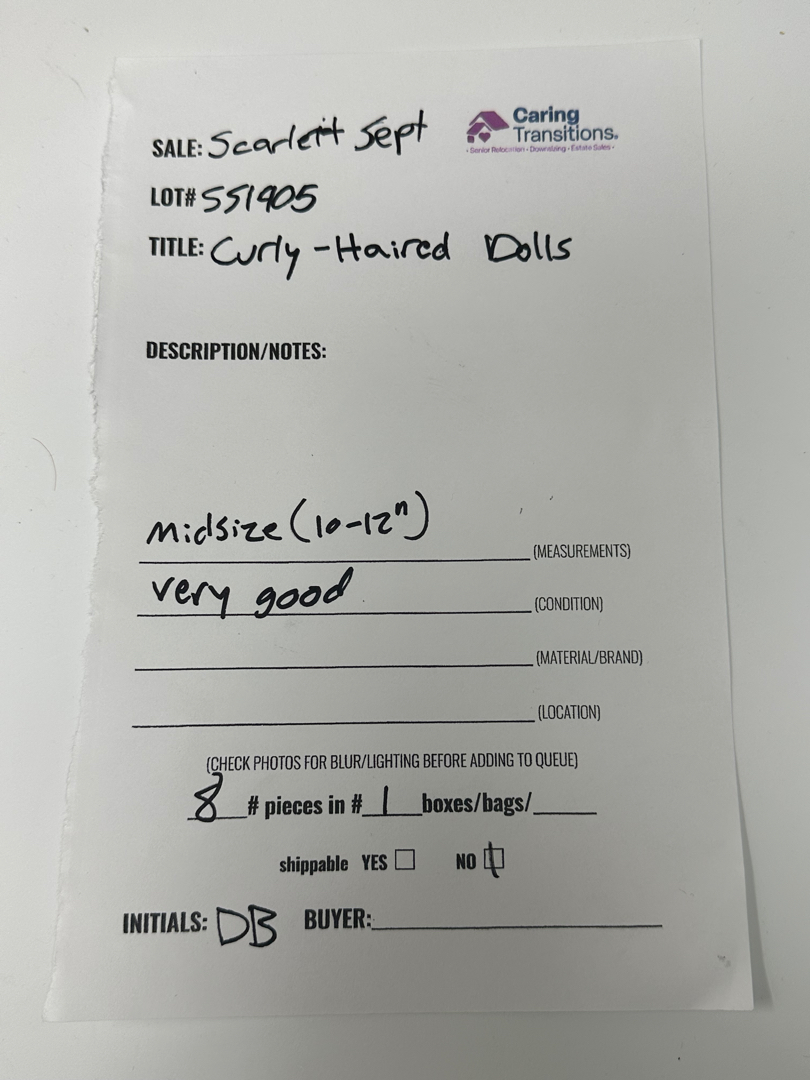 SALE: Scarlett Sept
Caring
Transitions.
• Senior Relocation • Downsizing • Estate Sales •
LOT# 551905
TITLE: Curly-Haired Dolls
DESCRIPTION/NOTES:
Midsize (10-12")
(MEASUREMENTS)
very good
(CONDITION)
(MATERIAL/BRAND)
(LOCATION)
(CHECK PHOTOS FOR BLUR/LIGHTING BEFORE ADDING TO QUEUE)
8 # pieces in # 1 boxes/bags/
shippable YES NO
INITIALS: DB BUYER: